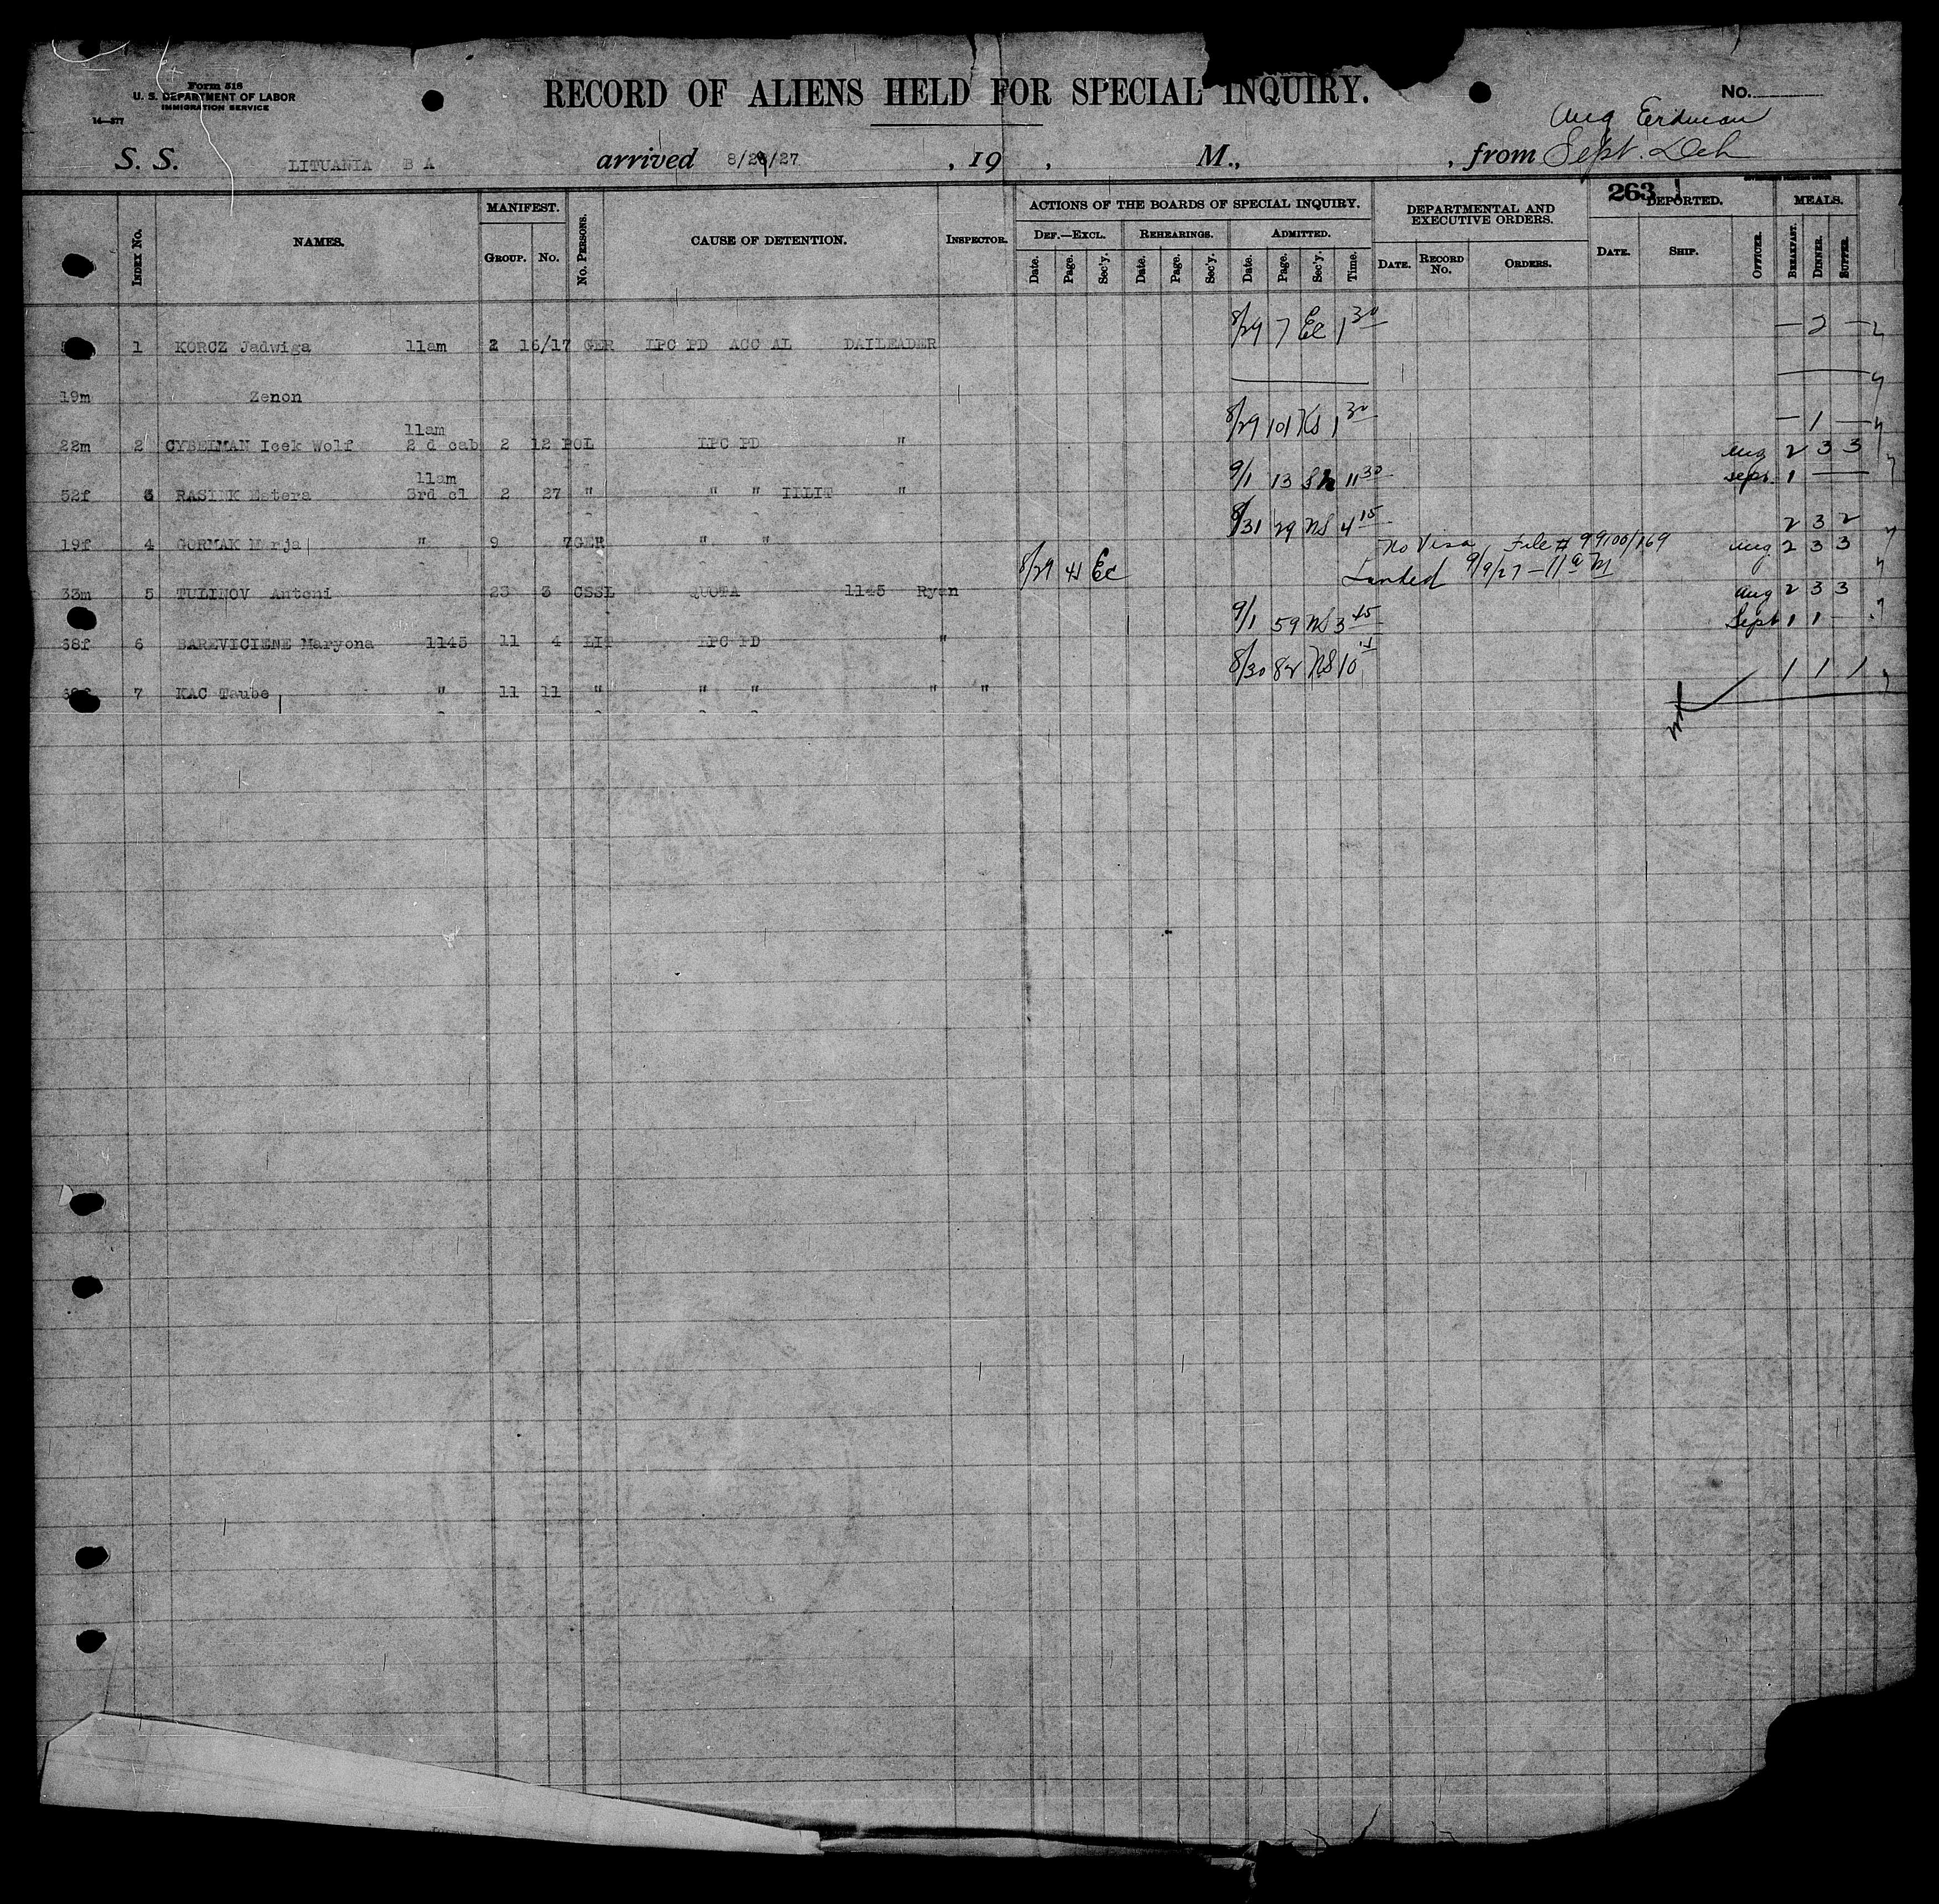 Form 518
U. S. DEPARTMENT OF LABOR
IMMIGRATION SERVICE
14—577
RECORD OF ALIENS HELD FOR SPECIAL INQUIRY.
No.
Aug Erdman
S. S. LITUANIA B A arrived 8/28/27, 19 , M., , from Sept.
263
INDEX No. NAMES. MANIFEST. GROUP. No. No. PERSONS. CAUSE OF DETENTION. INSPECTOR. ACTIONS OF THE BOARDS OF SPECIAL INQUIRY. DEPARTMENTAL AND EXECUTIVE ORDERS. DEPORTED. MEALS.
DEF.—EXCL. REHEARINGS. ADMITTED.
Date. Page. Sec'y. Date. Page. Sec'y. Date. Page. Sec'y. Time. DATE. RECORD No. ORDERS. DATE. SHIP. OFFICER. BREAKFAST. DINNER. SUPPER.
1 KORCZ Jadwiga 11am 2 16/17 GER LPC PD ACC AL DAILEADER 8/29 7 Ec 1 30 — 2 —
19m Zenon
22m 2 CYBELMAN Icek Wolf 11am 2 d cab 2 12 POL LPC PD " 8/29 101 NS 1 30 — 1 —
52f 3 RASINK Estera 11am 3rd cl 2 27 " " " ILLIT " 9/1 13 11 30 Aug 2 3 3
Sept. 1 —
19f 4 GORMAK Marja " 9 7 GER " " 8/31 29 NS 4 15 2 3 2
33m 5 TULINOV Antoni 23 3 CSSL QUOTA 1145 Ryan 8/29 41 Ec No Visa File # 99100/169 Aug 2 3 3
Landed 9/9/27 — 11 a M
68f 6 BAREVICIENE Maryona 1145 11 4 LIT LPC PD " 9/1 59 NS 3 45 Aug 2 3 3
Sept 1 1 —
7 KAC Taube " 11 11 " " " " " 8/30 82 NS 10 1 1 1